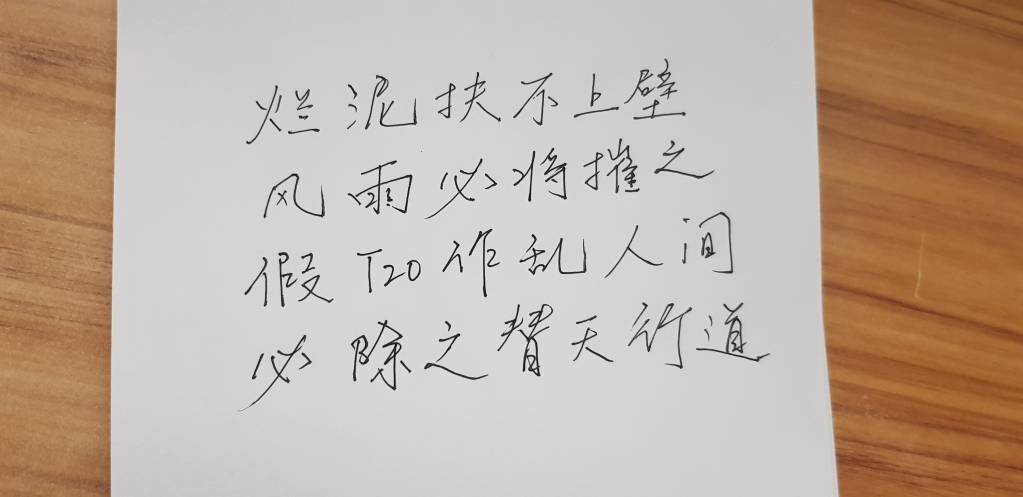 烂泥扶不上壁
风雨必将摧之
假T20作乱人间
必除之替天行道